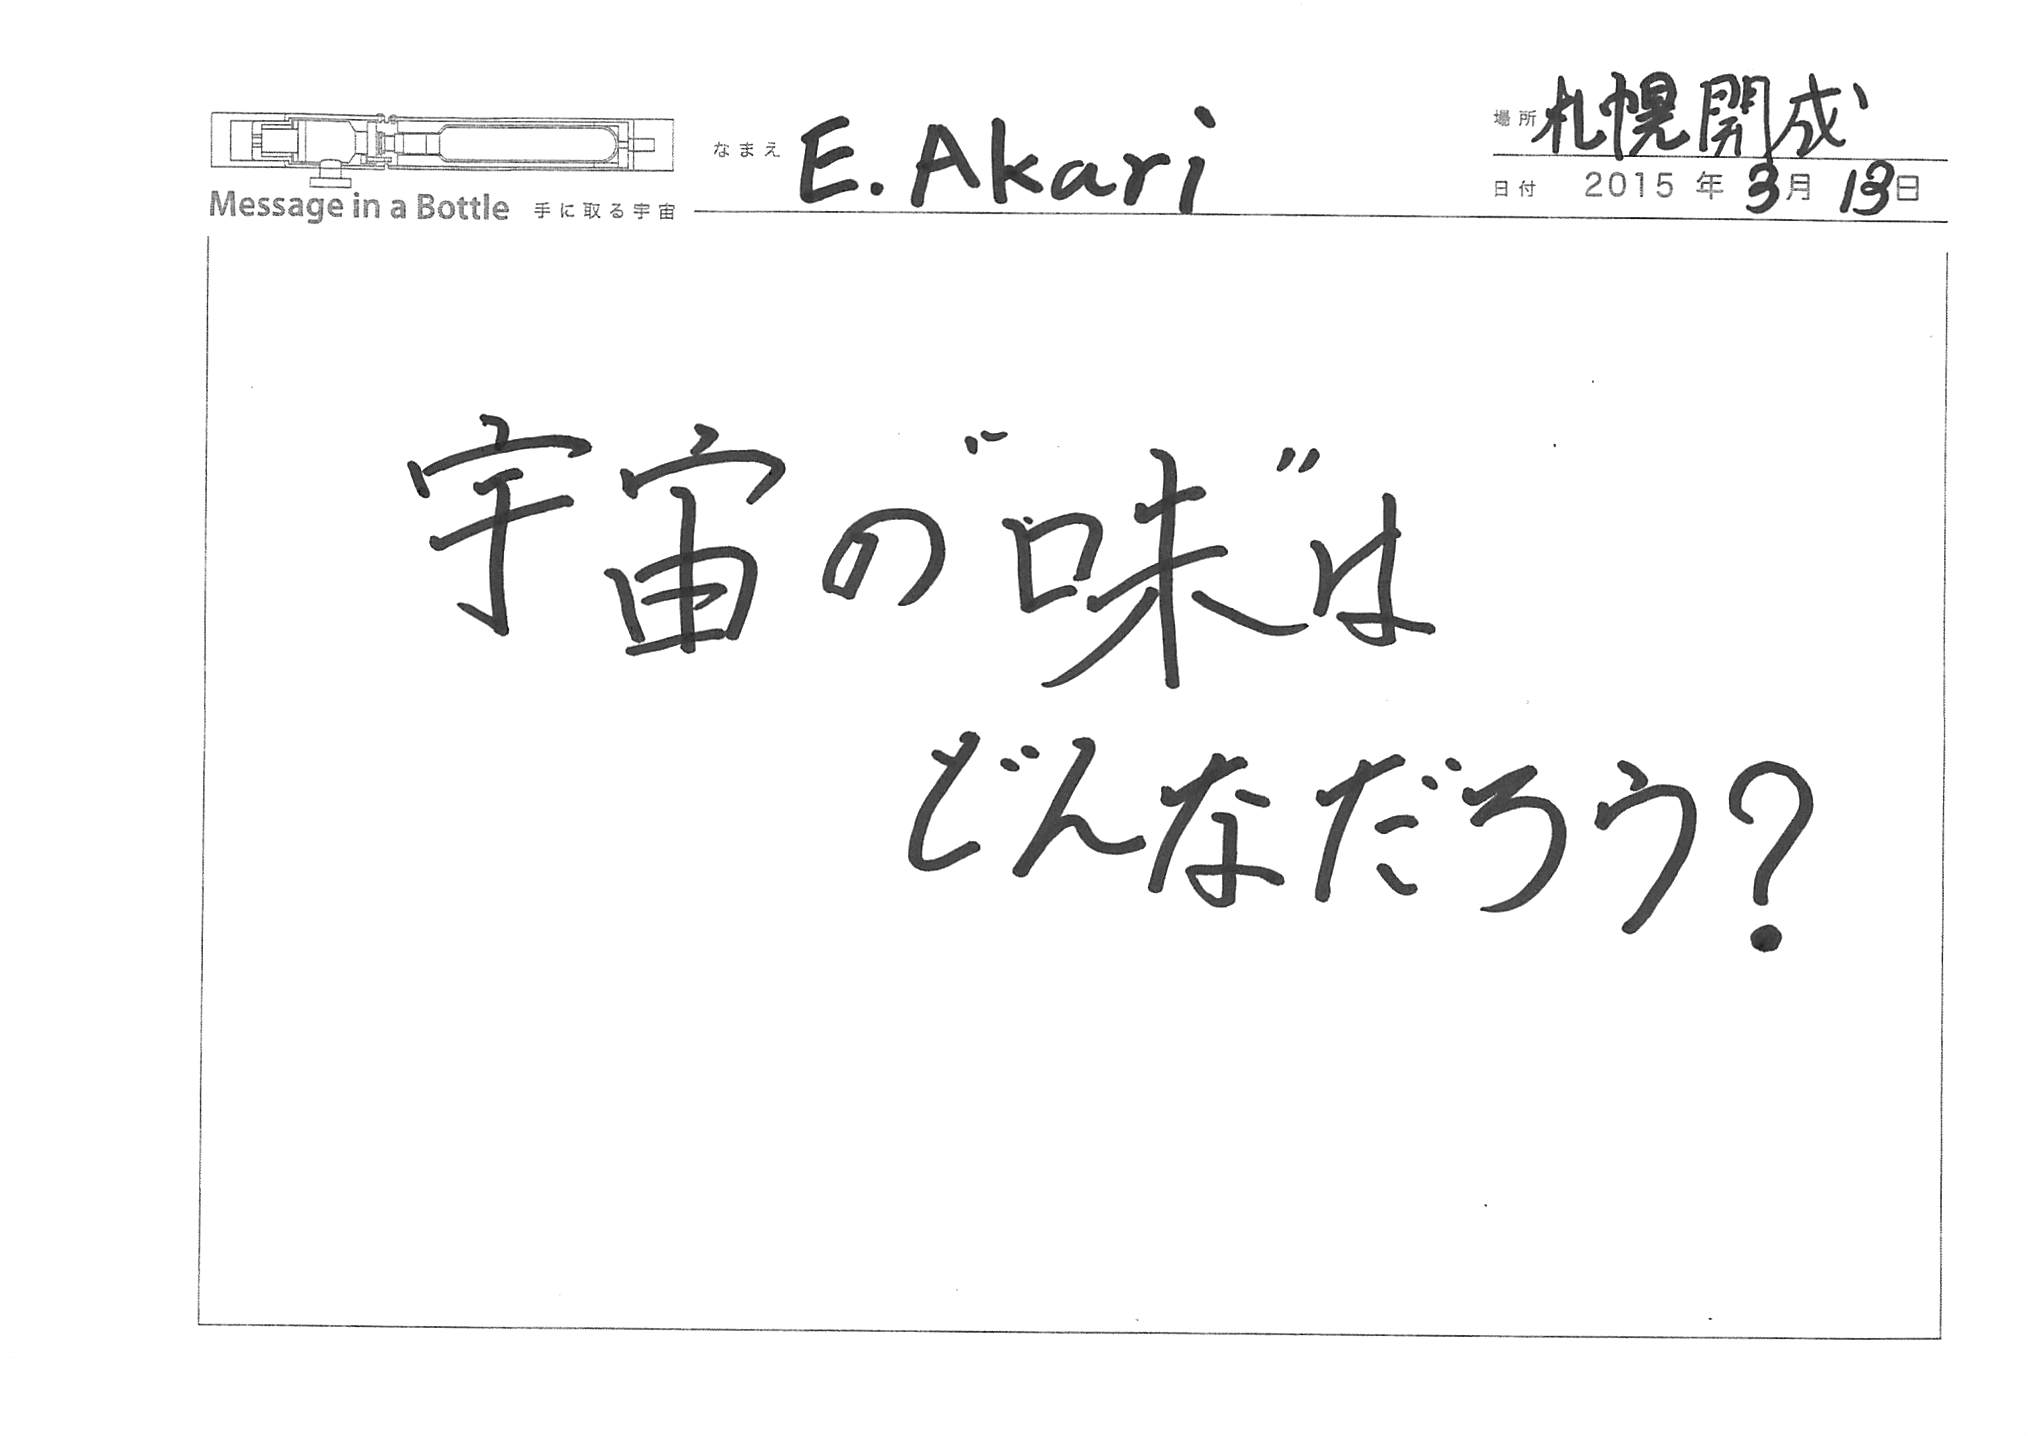 なまえ E. Akari
場所 札幌開成
Message in a Bottle 手に取る宇宙
日付 2015 年 3月 13日
宇宙の"味"は
どんなだろう?